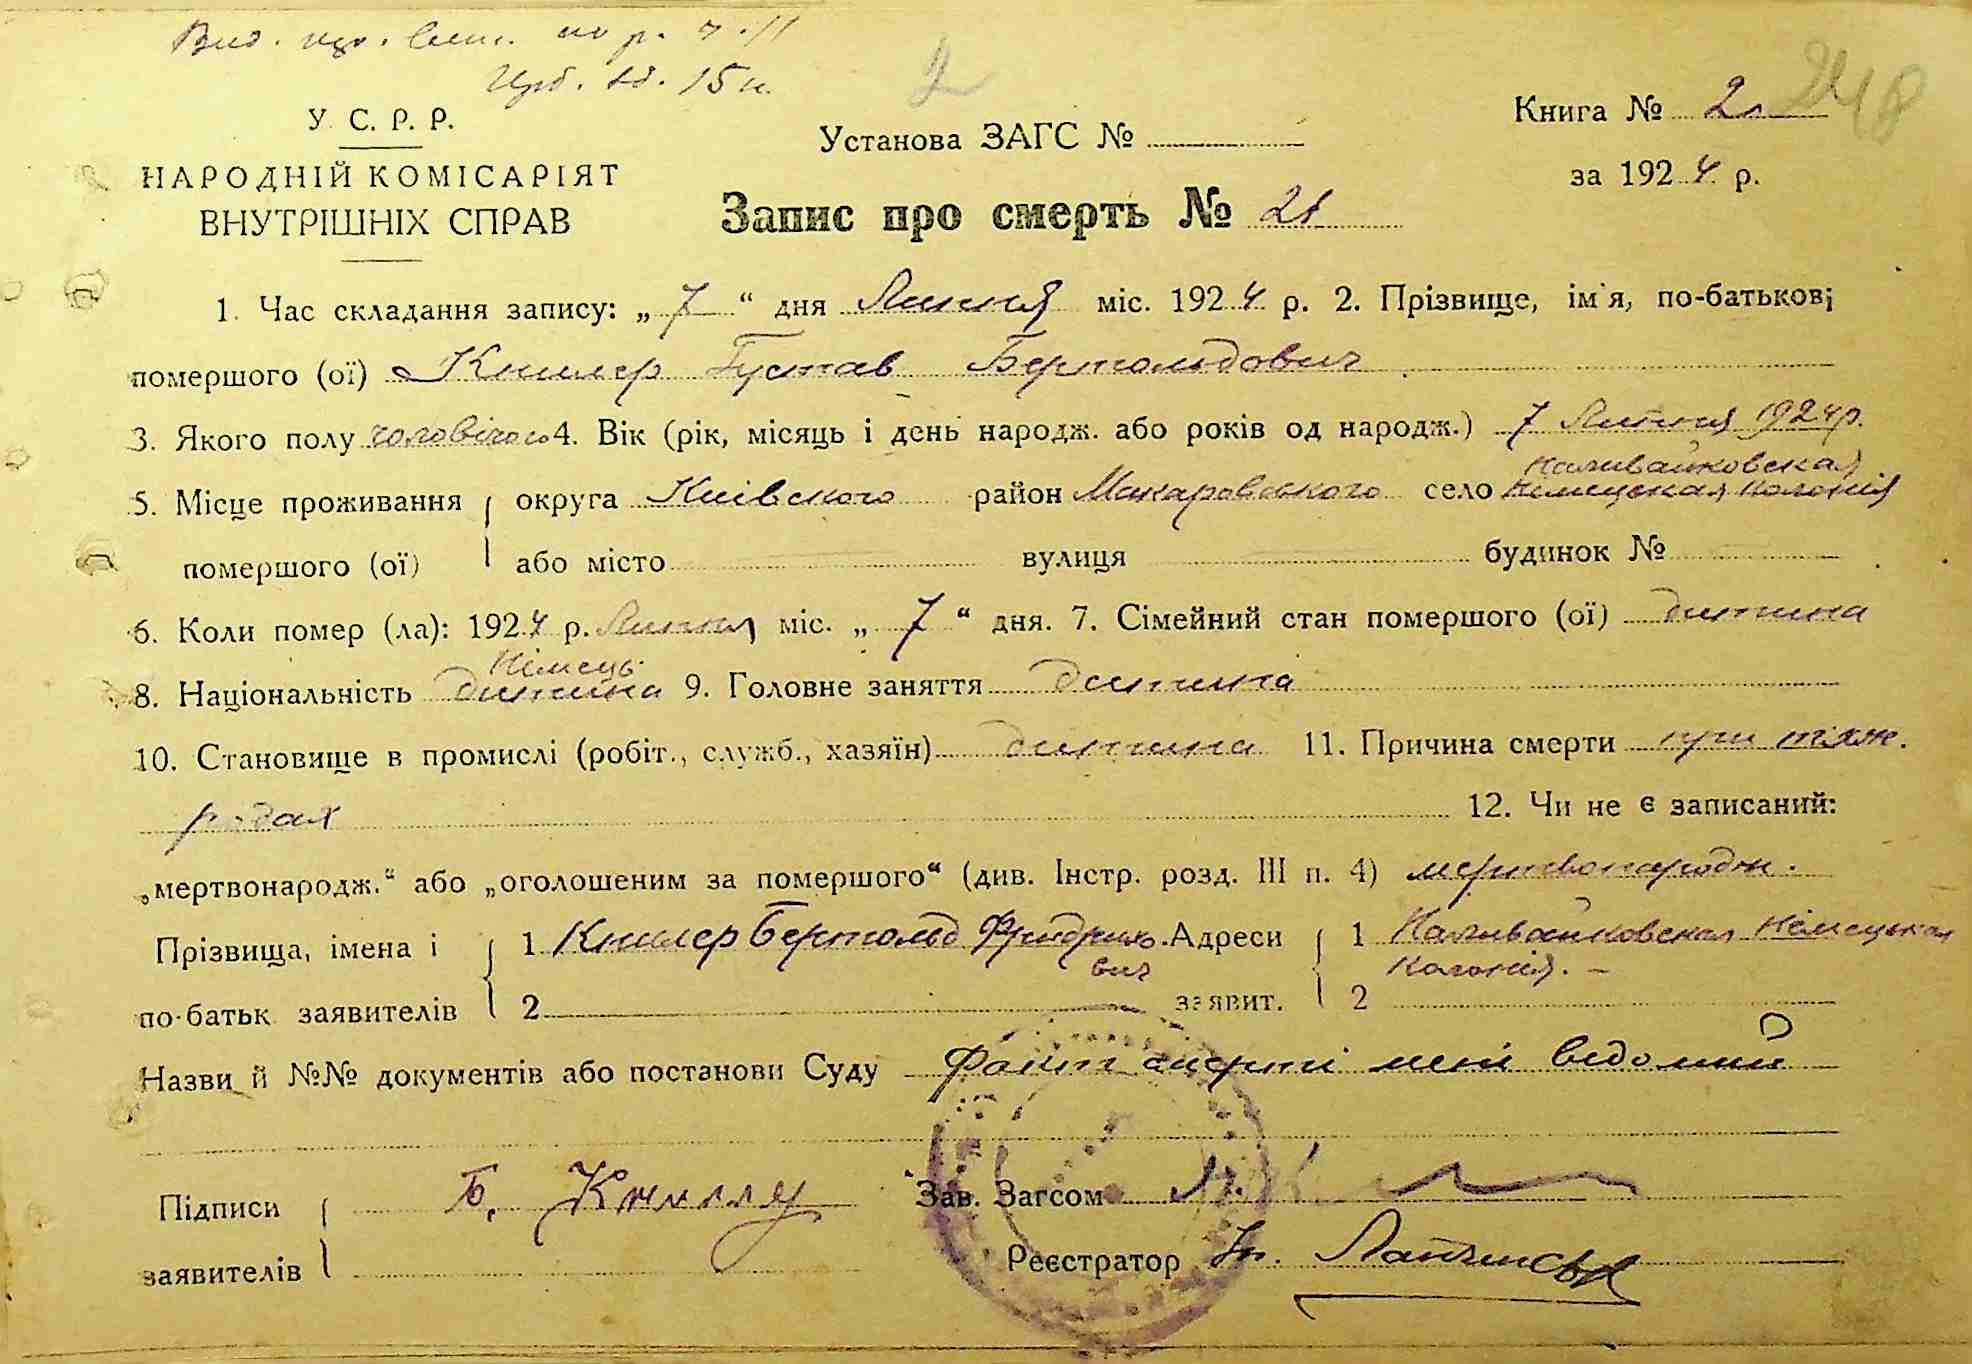 У. С. Р. Р.
НАРОДНІЙ КОМІСАРІЯТ
ВНУТРІШНІХ СПРАВ
Установа ЗАГС №
Книга № 2
за 1924 р.
Запис про смерть № 21
1. Час складання запису: „ 7 “ дня Липня міс. 1924 р. 2. Прізвище, ім'я, по-батькові
помершого (ої) Книлер Густав Бертольдович
3. Якого полу чоловічого 4. Вік (рік, місяць і день народж. або років од народж.) 7 Липня 1924 р.
Наливайковская
5. Місце проживання округа Київского район Макаровського село Німецская колонія
помершого (ої) або місто вулиця будинок №
6. Коли помер (ла): 1924 р. Липня міс. „ 7 “ дня. 7. Сімейний стан помершого (ої) дитина
Німець
8. Національність дитина 9. Головне заняття дитина
10. Становище в промислі (робіт., служб., хазяїн) дитина 11. Причина смерти при тяж.
родах 12. Чи не є записаний:
„мертвонародж.“ або „оголошеним за помершого“ (див. Інстр. розд. III п. 4) мертвонародж.
Прізвища, імена і 1 Книлер Бертольд Фридрихо- Адреси 1 Наливайковская Німецькая
вич колонія. –
по-батьк заявителів 2 заявит. 2
Назви й №№ документів або постанови Суду Факт смерті мені відомий
Підписи Б. Зав. Загсом
заявителів Реєстратор